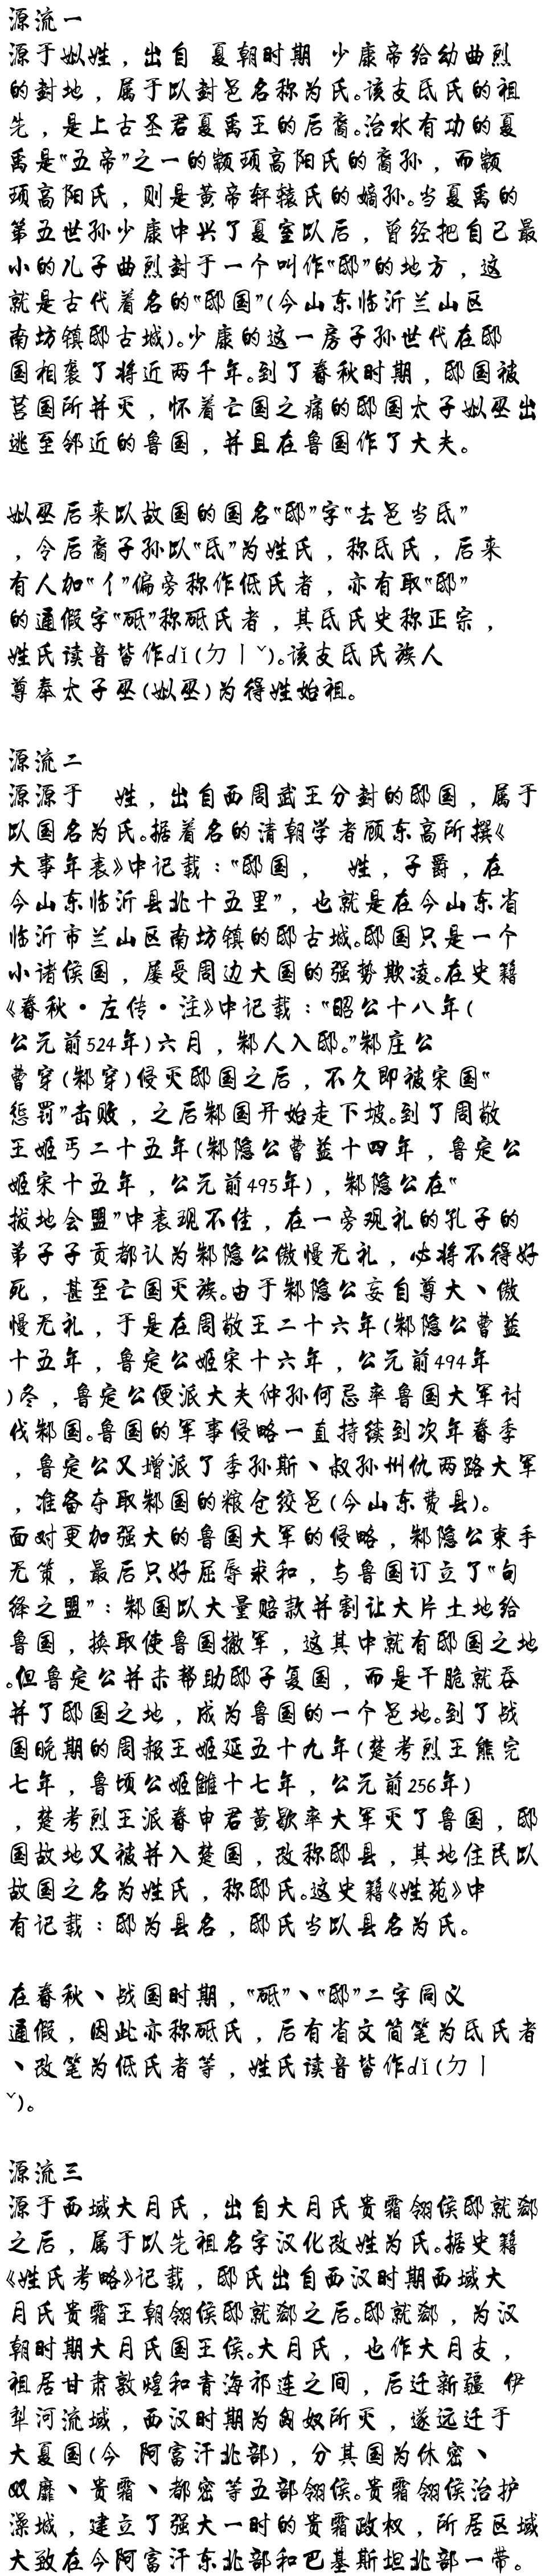 源流一
源于姒姓，出自 夏朝时期 少康帝给幼曲烈
的封地，属于以封邑名称为氏。该支氐氏的祖
先，是上古圣君夏禹王的后裔。治水有功的夏
禹是“五帝”之一的颛顼高阳氏的裔孙，而颛
顼高阳氏，则是黄帝轩辕氏的嫡孙。当夏禹的
第五世孙少康中兴了夏室以后，曾经把自己最
小的儿子曲烈封于一个叫作“鄅”的地方，这
就是古代着名的“鄅国”(今山东临沂兰山区
南坊镇鄅古城)。少康的这一房子孙世代在鄅
国相袭了将近两千年。到了春秋时期，鄅国被
莒国所并灭，怀着亡国之痛的鄅国太子姒巫出
逃至邻近的鲁国，并且在鲁国作了大夫。
姒巫后来以故国的国名“邸”字“去邑当氐”
，令后裔子孙以“氐”为姓氏，称氐氏，后来
有人加“亻”偏旁称作低氏者，亦有取“邸”
的通假字“砥”称砥氏者，其氐氏史称正宗，
姓氏读音皆作dǐ(ㄉㄧˇ)。该支氐氏族人
尊奉太子巫(姒巫)为得姓始祖。
源流二
源源于　姓，出自西周武王分封的邸国，属于
以国名为氏。据着名的清朝学者顾东高所撰《
大事年表》中记载：“邸国，　姓，子爵，在
今山东临沂县北十五里”，也就是在今山东省
临沂市兰山区南坊镇的邸古城。邸国只是一个
小诸侯国，屡受周边大国的强势欺凌。在史籍
《春秋·左传·注》中记载：“昭公十八年(
公元前524年)六月，邾人入邸。”邾庄公
曹穿(邾穿)侵灭邸国之后，不久即被宋国“
惩罚”击败，之后邾国开始走下坡。到了周敬
王姬丐二十五年(邾隐公曹益十四年，鲁定公
姬宋十五年，公元前495年)，邾隐公在“
拔地会盟”中表现不佳，在一旁观礼的孔子的
弟子子贡都认为邾隐公傲慢无礼，必将不得好
死，甚至亡国灭族。由于邾隐公妄自尊大、傲
慢无礼，于是在周敬王二十六年(邾隐公曹益
十五年，鲁定公姬宋十六年，公元前494年
)冬，鲁定公便派大夫仲孙何忌率鲁国大军讨
伐邾国。鲁国的军事侵略一直持续到次年春季
，鲁定公又增派了季孙斯、叔孙州仇两路大军
，准备夺取邾国的粮仓绞邑(今山东费县)。
面对更加强大的鲁国大军的侵略，邾隐公束手
无策，最后只好屈辱求和，与鲁国订立了“句
绎之盟”：邾国以大量赔款并割让大片土地给
鲁国，换取使鲁国撤军，这其中就有邸国之地
。但鲁定公并未帮助邸子复国，而是干脆就吞
并了邸国之地，成为鲁国的一个邑地。到了战
国晚期的周报王姬延五十九年(楚考烈王熊完
七年，鲁顷公姬雠十七年，公元前256年)
，楚考烈王派春申君黄歇率大军灭了鲁国，邸
国故地又被并入楚国，改称邸县，其地住民以
故国之名为姓氏，称邸氏。这史籍《姓苑》中
有记载：邸为县名，邸氏当以县名为氏。
在春秋、战国时期，“砥”、“邸”二字同义
通假，因此亦称砥氏，后有省文简笔为氐氏者
、改笔为低氏者等，姓氏读音皆作dǐ(ㄉㄧ
ˇ)。
源流三
源于西域大月氏，出自大月氏贵霜翎侯邸就郤
之后，属于以先祖名字汉化改姓为氏。据史籍
《姓氏考略》记载，邸氏出自西汉时期西域大
月氏贵霜王朝翎侯邸就郤之后。邸就郤，为汉
朝时期大月氏国王侯。大月氏，也作大月支，
祖居甘肃敦煌和青海祁连之间，后迁新疆 伊
犁河流域，西汉时期为匈奴所灭，遂远迁于
大夏国(今 阿富汗北部)，分其国为休密、
双靡、贵霜、都密等五部翎侯。贵霜翎侯治护
澡城，建立了强大一时的贵霜政权，所居区域
大致在今阿富汗东北部和巴基斯坦北部一带。